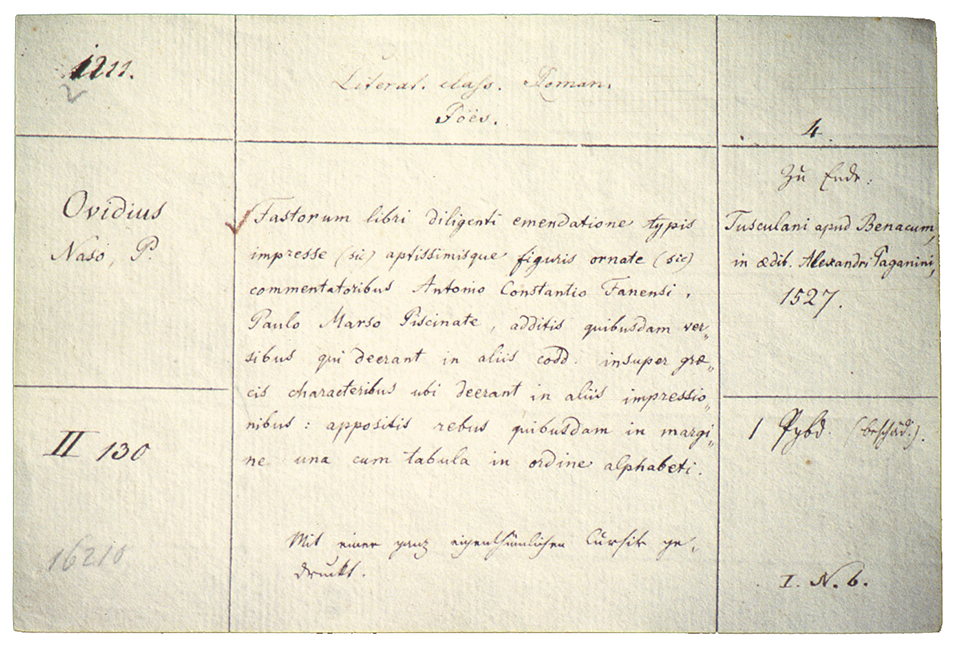 1211.
Literat. class. Roman.
Poës.
4.
Ovidius
Naso, P.
Fastorum libri diligenti emendatione typis
impresse (sic) aptissimisque figuris ornate (sic)
commentatoribus Antonio Constantio Fanensi,
Paulo Marso Piscinate, additis quibusdam ver„
sibus qui deerant in aliis codd. insuper græ„
cis characteribus ubi deerant in aliis impressio„
nibus: appositis rebus quibusdam in margi„
ne una cum tabula in ordine alphabeti.
Mit einer ganz eigenthümlichen Cursiv ge„
druckt.
Zu Ende:
Tusculani apud Benacum,
in ædib. Alexandri Paganini,
1527.
II 130
16210
1 Ppbd. (beschäd.).
I. N. 6.